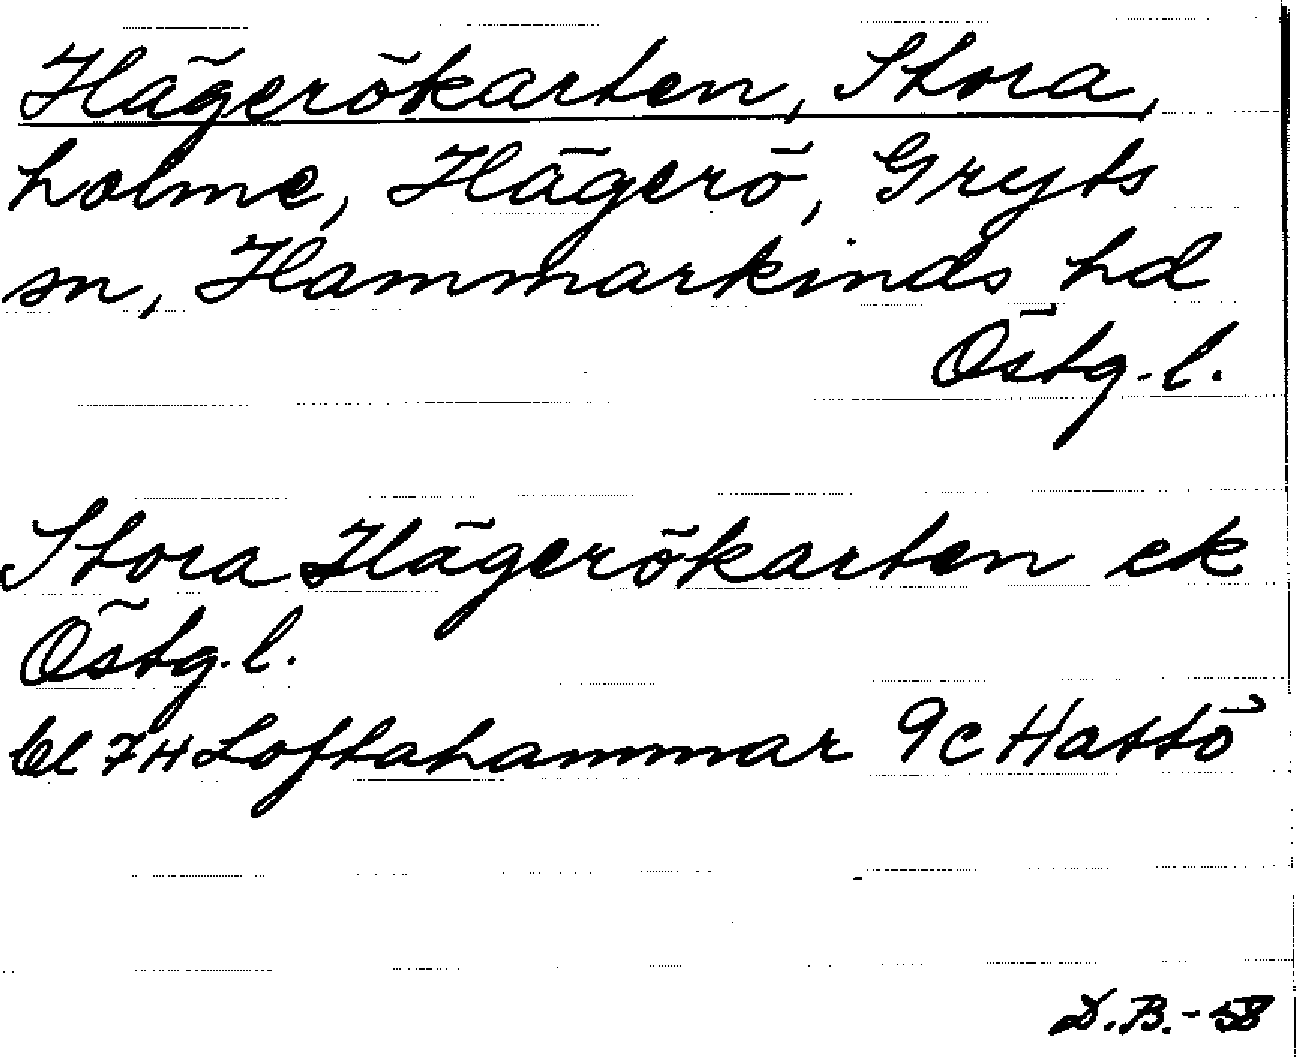 Hägerökarten, Stora,
holme, Hägerö, Gryts
sn, Hammarkinds hd
Östg. l.
Stora Hägerökarten ek
Östg. l.
bl 7H Loftahammar 9c Hattö
D.B.-58